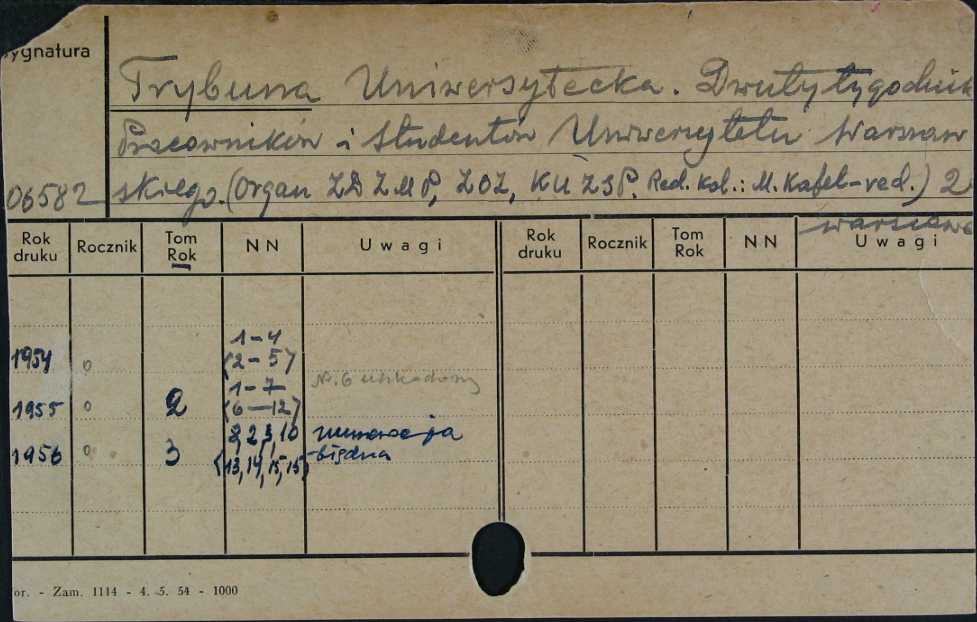 ygnatura
Trybuna Uniwersytecka. Dwutytygodnik
Pracowników i Studentów Uniwersytetu Warszaw
06582 skiego. (Organ ZD ZMP, ZOZ, KU ZSP. Red. kol.: M. Kafel-red.) 2
Warszawa
Rok druku Rocznik Tom Rok NN Uwagi Rok druku Rocznik Tom Rok NN Uwagi
1-4
1954 0 (2-5)
1-7 Nr. 6
1955 0 2 (6-12)
2, 3, 10 numeracja
1956 0 3 (13, 14, 15, 15) błędna
or. - Zam. 1114 - 4. 5. 54 - 1000